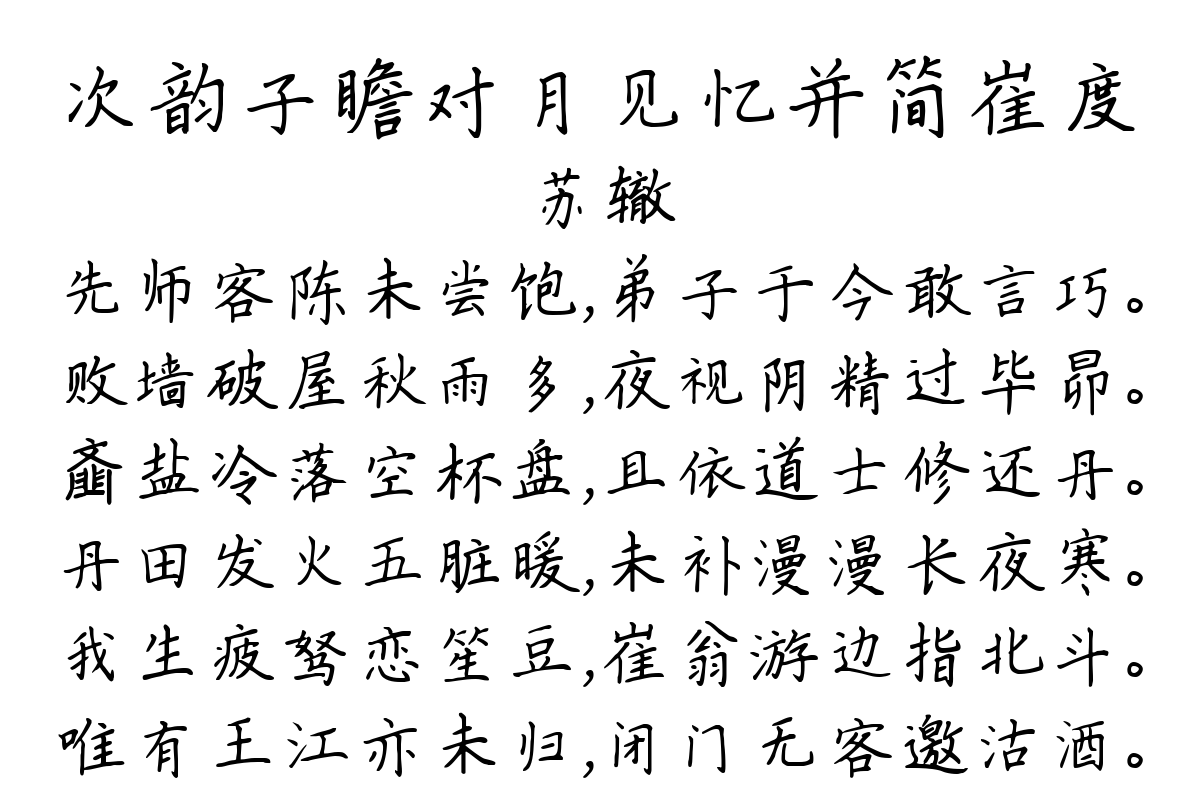 次韵子瞻对月见忆并简崔度
苏辙
先师客陈未尝饱,弟子于今敢言巧。
败墙破屋秋雨多,夜视阴精过毕昴。
齑盐冷落空杯盘,且依道士修还丹。
丹田发火五脏暖,未补漫漫长夜寒。
我生疲驽恋笙豆,崔翁游边指北斗。
唯有王江亦未归,闭门无客邀沽酒。